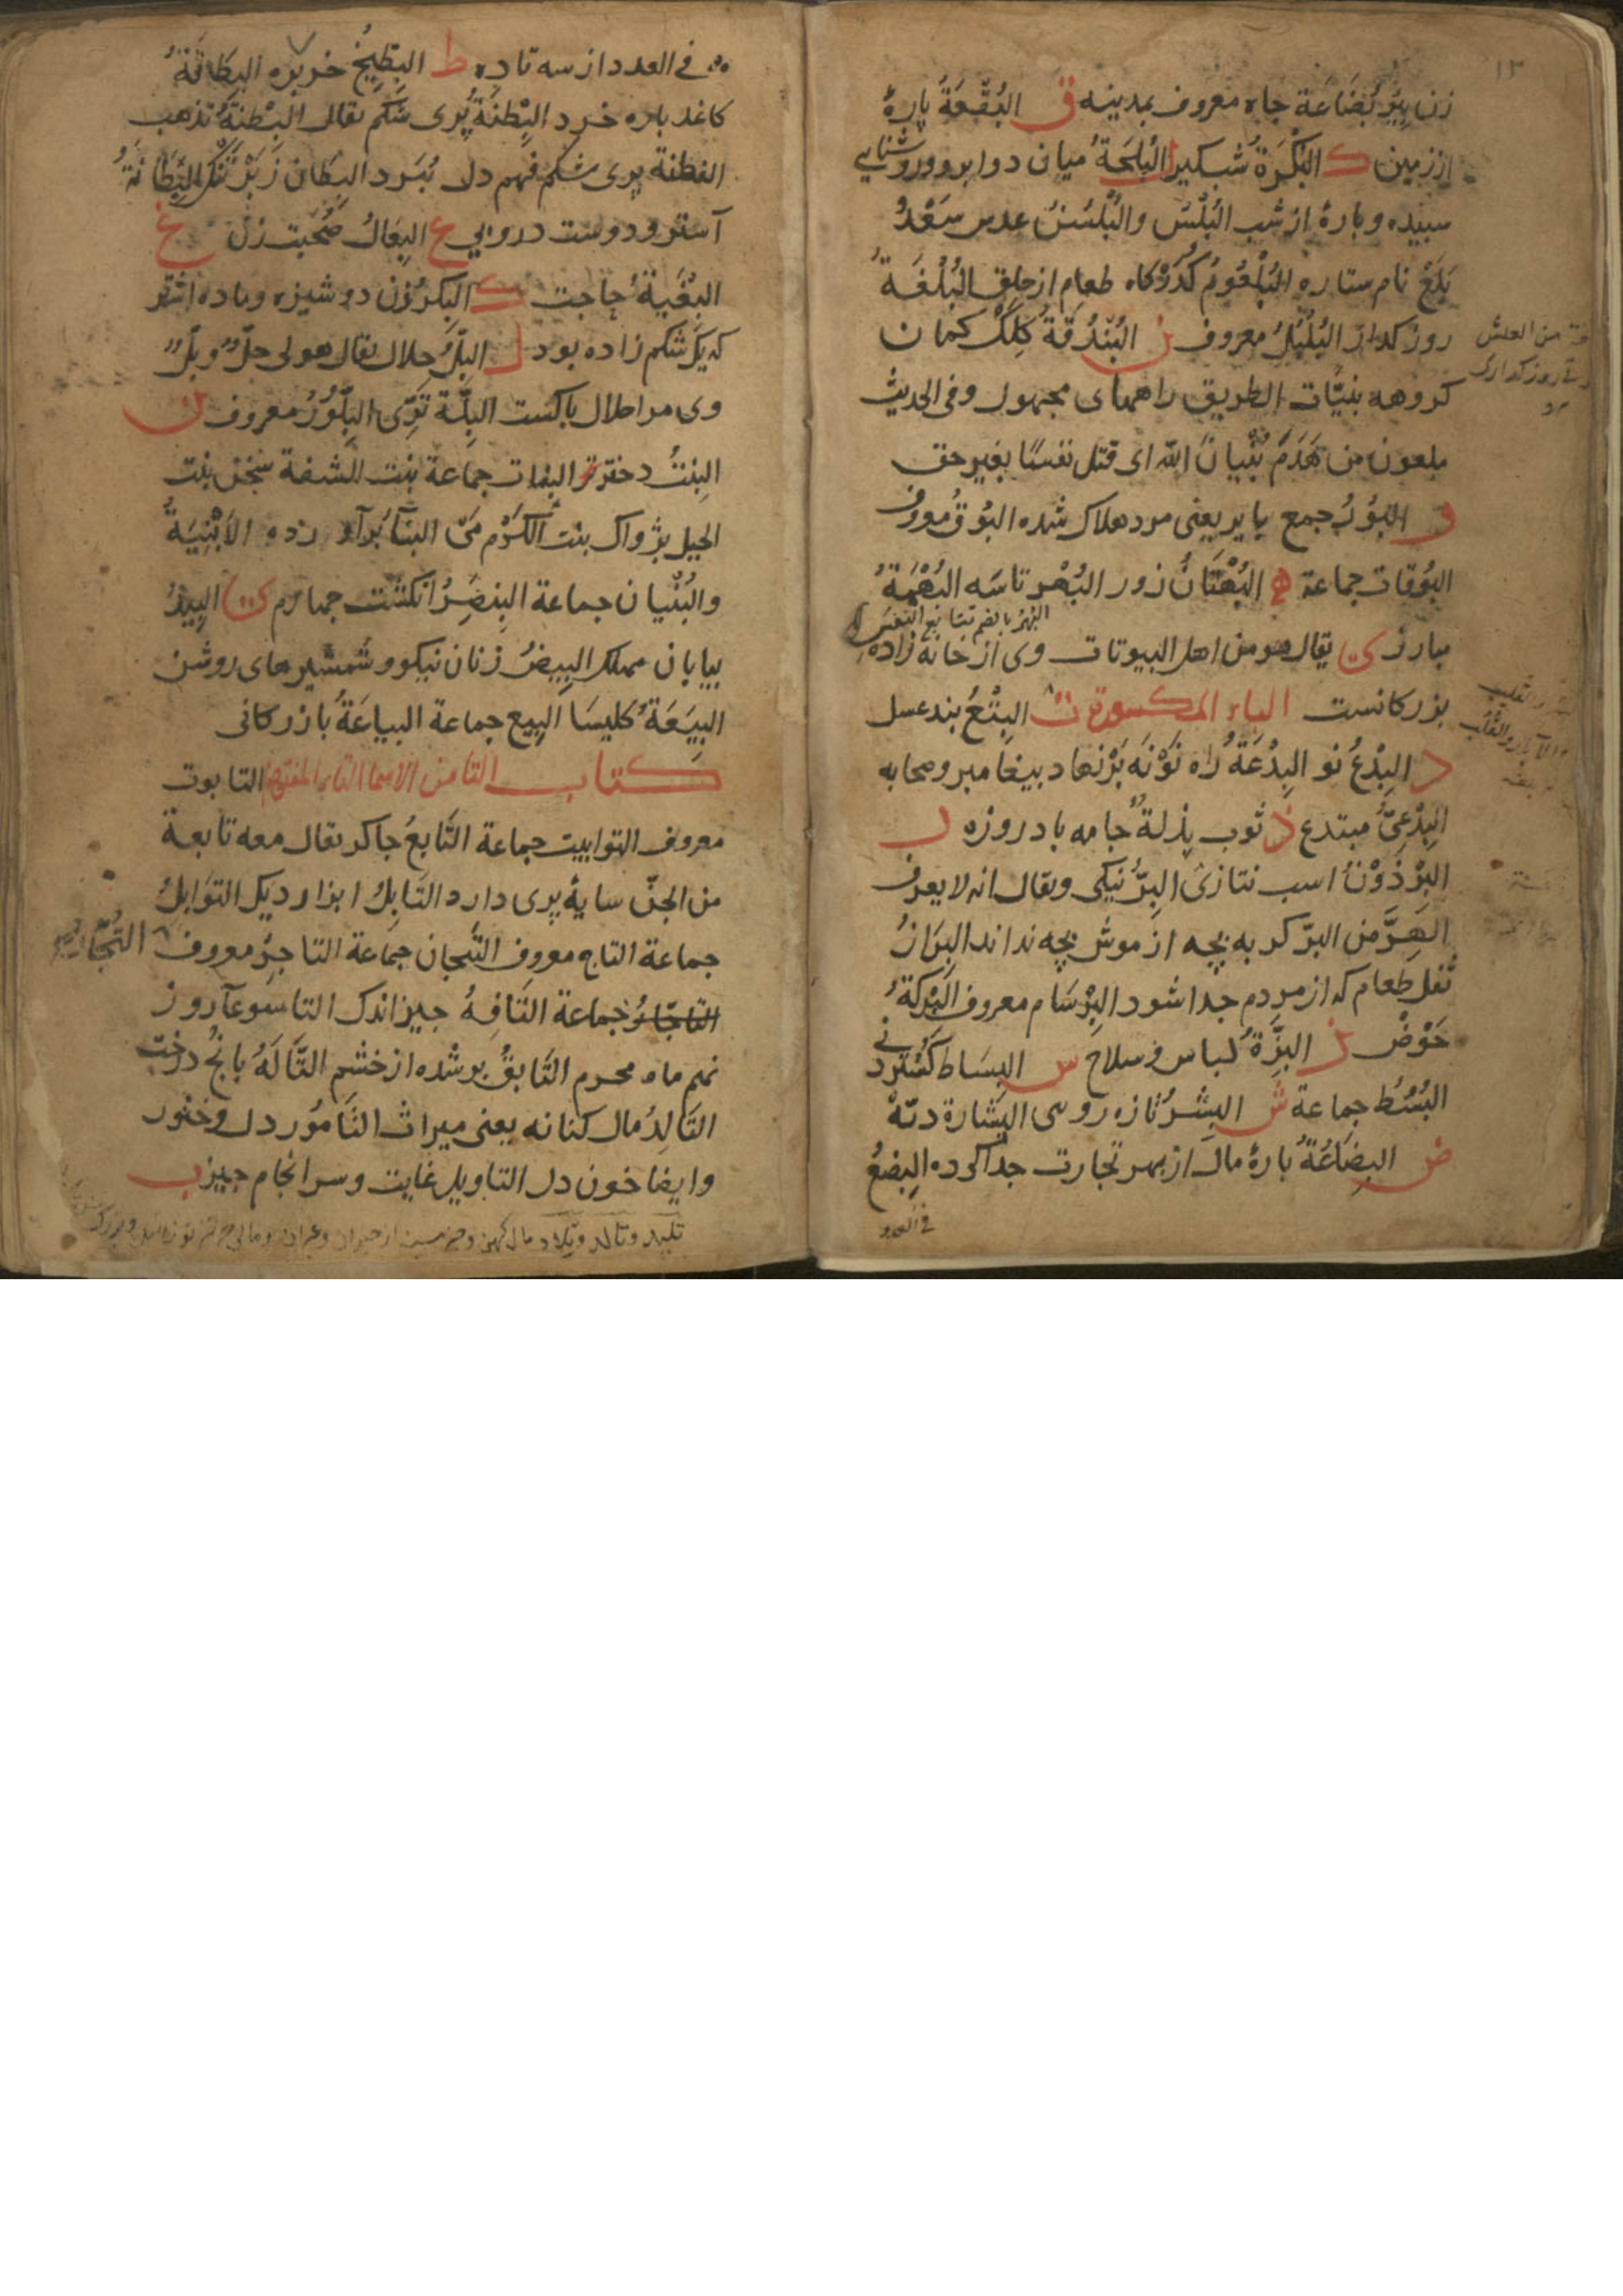 ١٣
زن بِئرُ بُضَاعَة جاه معروف بمدینه ق البُقْعَةُ پارهٔ
از زمین ک البُكْرَةُ شبکیر ل البُلْجَةُ میان دو ابرو و روشنایی
سبیده و بارهٔ از شب البُلْسُ والبُلْسُنُ عدس سَعْدُ
بُلَعْ نام ستاره البُلْعُومُ کُذَرْکاه طعام از حلق البُلْغَةُ
روز کذار البُلْبُلُ معروف ن البُنْدُقَةُ کِلِکْ کمان
کروهه بنیّات الطریق راههای مجهول وفی الحدیث
ملعون من هَدَمَ بُنْیَانَ الله ای قتل نفسًا بغیر حق
و البُوْرُ جمع بایر یعنی مرد هلاک شده البُوْقُ معروف
البُوْقَات جماعة ه البُهْتَانُ زور البُهْر تاسَه البُهْمَةُ
البُهْرُ بالضم تتابع النفس
مبارز ی یقال هو من اهل البیوتات وی از خانه زاده
بزرکانست الباء المکسورة ت البِتْعُ بند عسل
د البِدْعُ نو البِدْعَةُ راه نَوْنَه بَرْنهاد بیغامبر و صحابه
البِدْعِیُّ مبتدع ذ ثوب بِذلةٌ جامه باد روزه ر
البِرْذَوْنُ اسب نتازی البِرُّ نیکی ویقال انه لا یعرف
الهِرَّ من البِرّ کربه بچه از موش بچه نداند البِرَازُ
ثفل طعام که از مردم جدا شود البِرْسَام معروف البِرْکَةُ
حَوْضْ ز البِزَّةُ لباس و سلاح س البِسَاط کُسْتَردنی
البُسُط جماعة ش البِشْرُ تازه رویی البِشَارة
ض البِضَاعَةُ بارهٔ مال از بهر تجارت جدا کرده البِضْعُ
فی العدد
فی العدد از سه تا ده ط البِطِّیْخُ خربزه البِطَاقَةُ
کاغد باره خرد البِطْنَةُ پُری شکم یقال البِطْنَةُ تذهب
الفطنة پری شکم فهم دل بُبَرد البِطَان زَبَرْ تَنْک البِطَانَةُ
آستر و دوست درونی ع البِعَالُ صُحبت زن غ
البِغْیَةُ حاجت ک البِکْرُ زن دوشیزه و ماده اشتر
که یک شکم زاده بود ل البِلُّ حلال یقال هو لی حِلٌّ وبِلٌّ
وی مرا حلال باکست البِلَّة تَرِّی البِلَّوْرُ معروف ن
البِنْتُ دختر البَنات جماعة بنت الشفة سخن بنت
الجبل پژواک بنت الکَرْم مَیْ البِنَآءُ برآورده الاَبْنِیَةُ
والبُنْیَان جماعة البِنْصِرُ انکشت جهارم ی البِیْدُ
بیابان مهلک البِیضُ زنان نیکو و شمشیرهای روشن
البِیْعَةُ کلیسَا البِیَع جماعة البیاعَةُ بازرکانی
کتاب التا من الاسما التاء المفتوحة التابوت
معروف التوابیت جماعة التَابِعُ جاکر یقال معه تابعة
من الجنّ سایهٔ پری دارد التَابِلُ ابزار دیک التوَابِلُ
جماعة التاج معروف التیجان جماعة التاجِرُ معروف التُجَّارُ
التاجّار جماعة التَافِهُ جیز اندک التاسوعآ روز
نهم ماه محرم التَایقُ بر شده از خشم التَالَةُ بانخ درخت
التَالِدُ مال کهانه یعنی میراث التَامُوْر دل و خنور
وایضا خون دل التاویل غایت و سرانجام جیز ب
تلید وتالد وتلاد مال کهن